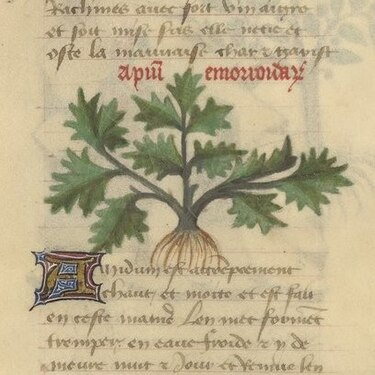 Rachines avec fort vin aigre
et soit mise sus elle netie et
oste la mauvaise char & garist
Apiu emoroidaꝝ
Amidum est atrempement
chaut et moite et est fait
en ceste maniere Len met forment
tremper en eaue froide & y de
meure nuit & Jour et Remue len